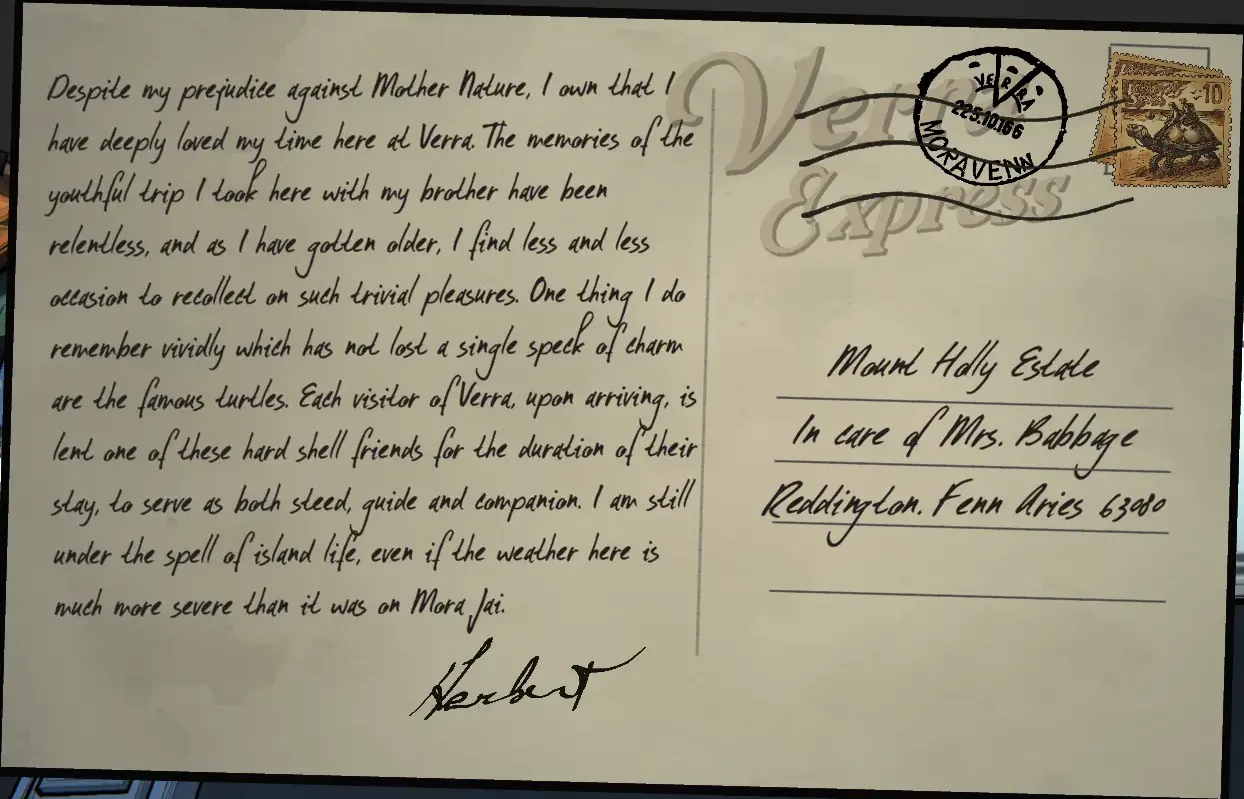 Despite my prejudice against Mother Nature, I own that I
have deeply loved my time here at Verra. The memories of the
youthful trip I took here with my brother have been
relentless, and as I have gotten older, I find less and less
occasion to recollect on such trivial pleasures. One thing I do
remember vividly which has not lost a single speck of charm
are the famous turtles. Each visitor of Verra, upon arriving, is
lent one of these hard shell friends for the duration of their
stay, to serve as both steed, guide and companion. I am still
under the spell of island life, even if the weather here is
much more severe than it was on Mora Jai.
Herbert
Verra
Express
VERRA
225.10166
MORAVENN
10
Mount Holly Estate
In care of Mrs. Babbage
Reddington. Fenn Aries 63080